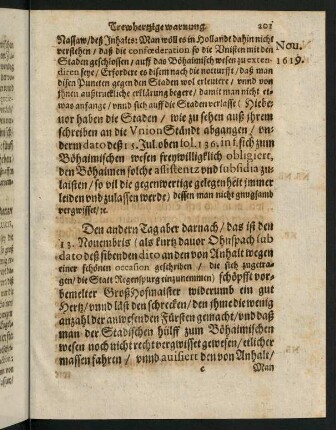 Trewhertzige warnung. 201
Nassaw/ deß Inhalts: Man wöll es in Hollandt dahin nicht
verstehen / daß die confœderation so die Vnisten mit den
Staden geschlossen / auff das Böhaimisch wesen zu exten-
direm seye / Erfordere es disem nach die notturfft / daß man
disen Puncten gegen den Staden wol erleutere / vnnd von
jhnen außtruckliche erklärung begere / damit man nicht et-
was anfange / vnnd sich auff die Staden verlasse ( Hiebe-
uor haben die Staden / wie zu sehen auß jhrem
schreiben an die Vnion Ständt abgangen / vn-
derm dato deß 15. Jul. oben fol. 136. in f. sich zum
Böhaimischen wesen freywilligklich obligiert,
den Böhaimen solche assistentz vnd subsidia zu-
laisten / so vil die gegenwertige gelegenheit jmmer
leiden vnd zulassen werde) dessen man nicht gnugsamb
vergwisset / ꝛc.
Den andern Tag aber darnach / das ist den
13. Nouembris (als kurtz dauor Ohnspach sub
dato deß sibenden dito an den von Anhalt wegen
einer schönen occasion geschriben / die sich zugetra-
gen / die Statt Regenspurg einzunemmen) schöpfft vor-
bemelter Groß Hofmaister widerumb ein gut
Hertz / vnnd läst den schrecken / den jhme die wenig
anzahl der anwesenden Fürsten gemacht / vnd daß
man der Stadischen hülff zum Böhaimischen
wesen noch nicht recht vergwisset gewesen / etlicher
massen fahren / vnnd auisiert den von Anhalt /
c Man
Nou.
1619.